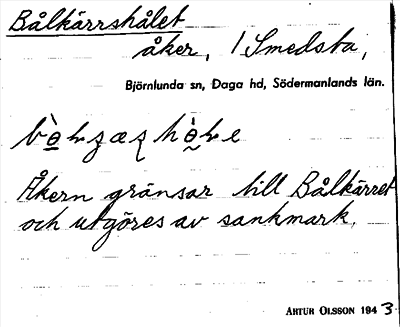 Bålkärrshålet
åker, / Smedsta,
Björnlunda sn, Daga hd, Södermanlands län.
Åkern gränsar till Bålkärret
och utgöres av sankmark.
ARTUR OLSSON 1943